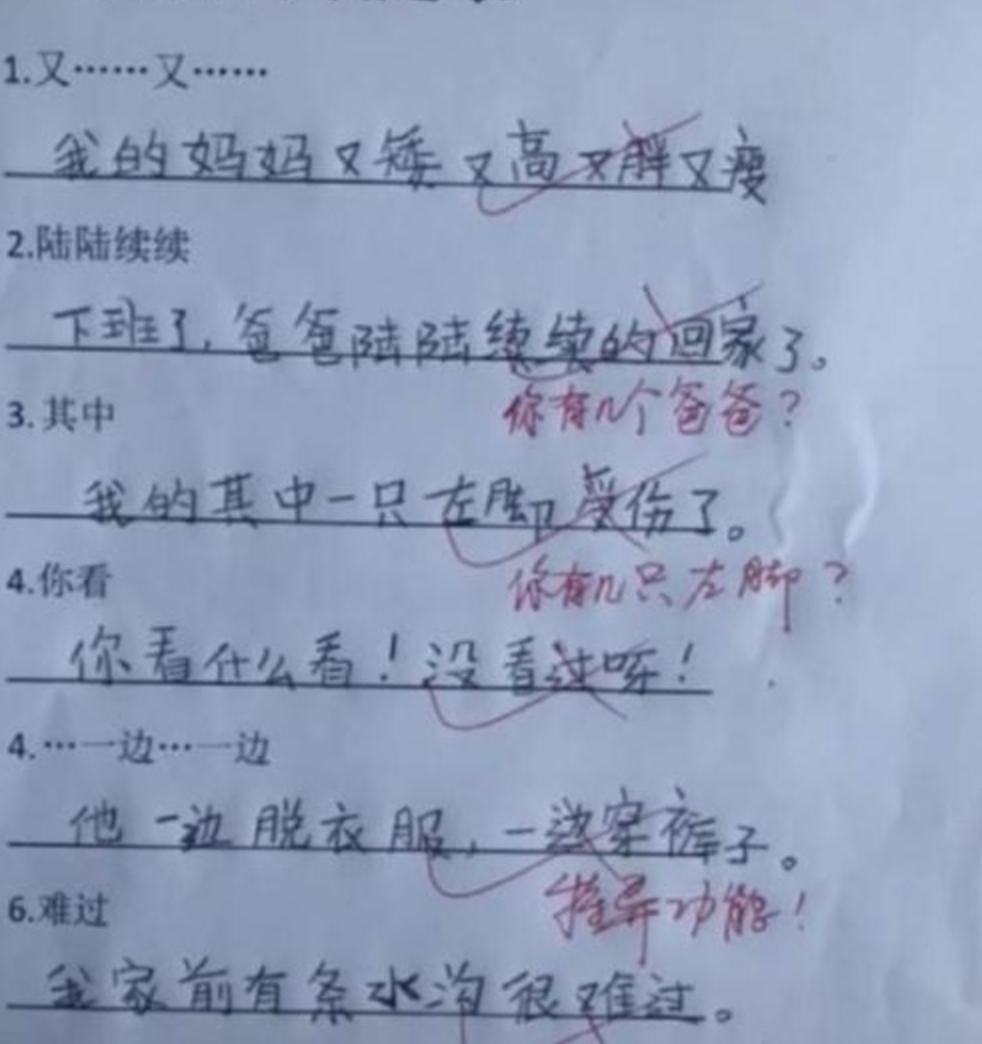 1.又……又……
我的妈妈又矮又高又胖又瘦
2.陆陆续续
下班了，爸爸陆陆续续的回家了。
你有几个爸爸？
3.其中
我的其中一只左脚受伤了。
你有几只左脚？
4.你看
你看什么看！没看过呀！
4.…一边…一边
他一边脱衣服，一边穿裤子。
特异功能！
6.难过
我家前有条水沟很难过。